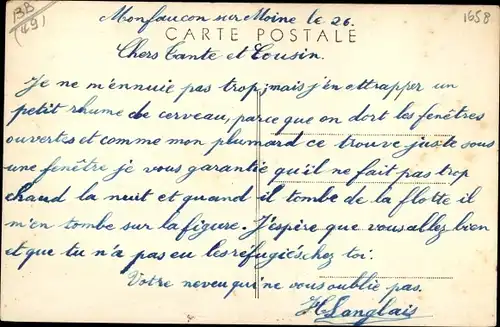 BB
(49)
1658
Monfaucon sur Moine le 26.
CARTE POSTALE
Chers Tante et Cousin.
Je ne m'ennuie pas trop, mais j'en attrapper un
petit rhume de cerveau, parce que on dort les fenêtres
ouvertes et comme mon plumard ce trouve juste sous
une fenêtre je vous garantie qu'il ne fait pas trop
chaud la nuit et quand il tombe de la flotte il
m'en tombe sur la figure. J'espère que vous allez bien
et que tu n'a pas eu les réfugiés chez toi.
Votre neveu qui ne vous oublie pas.
H Langlais